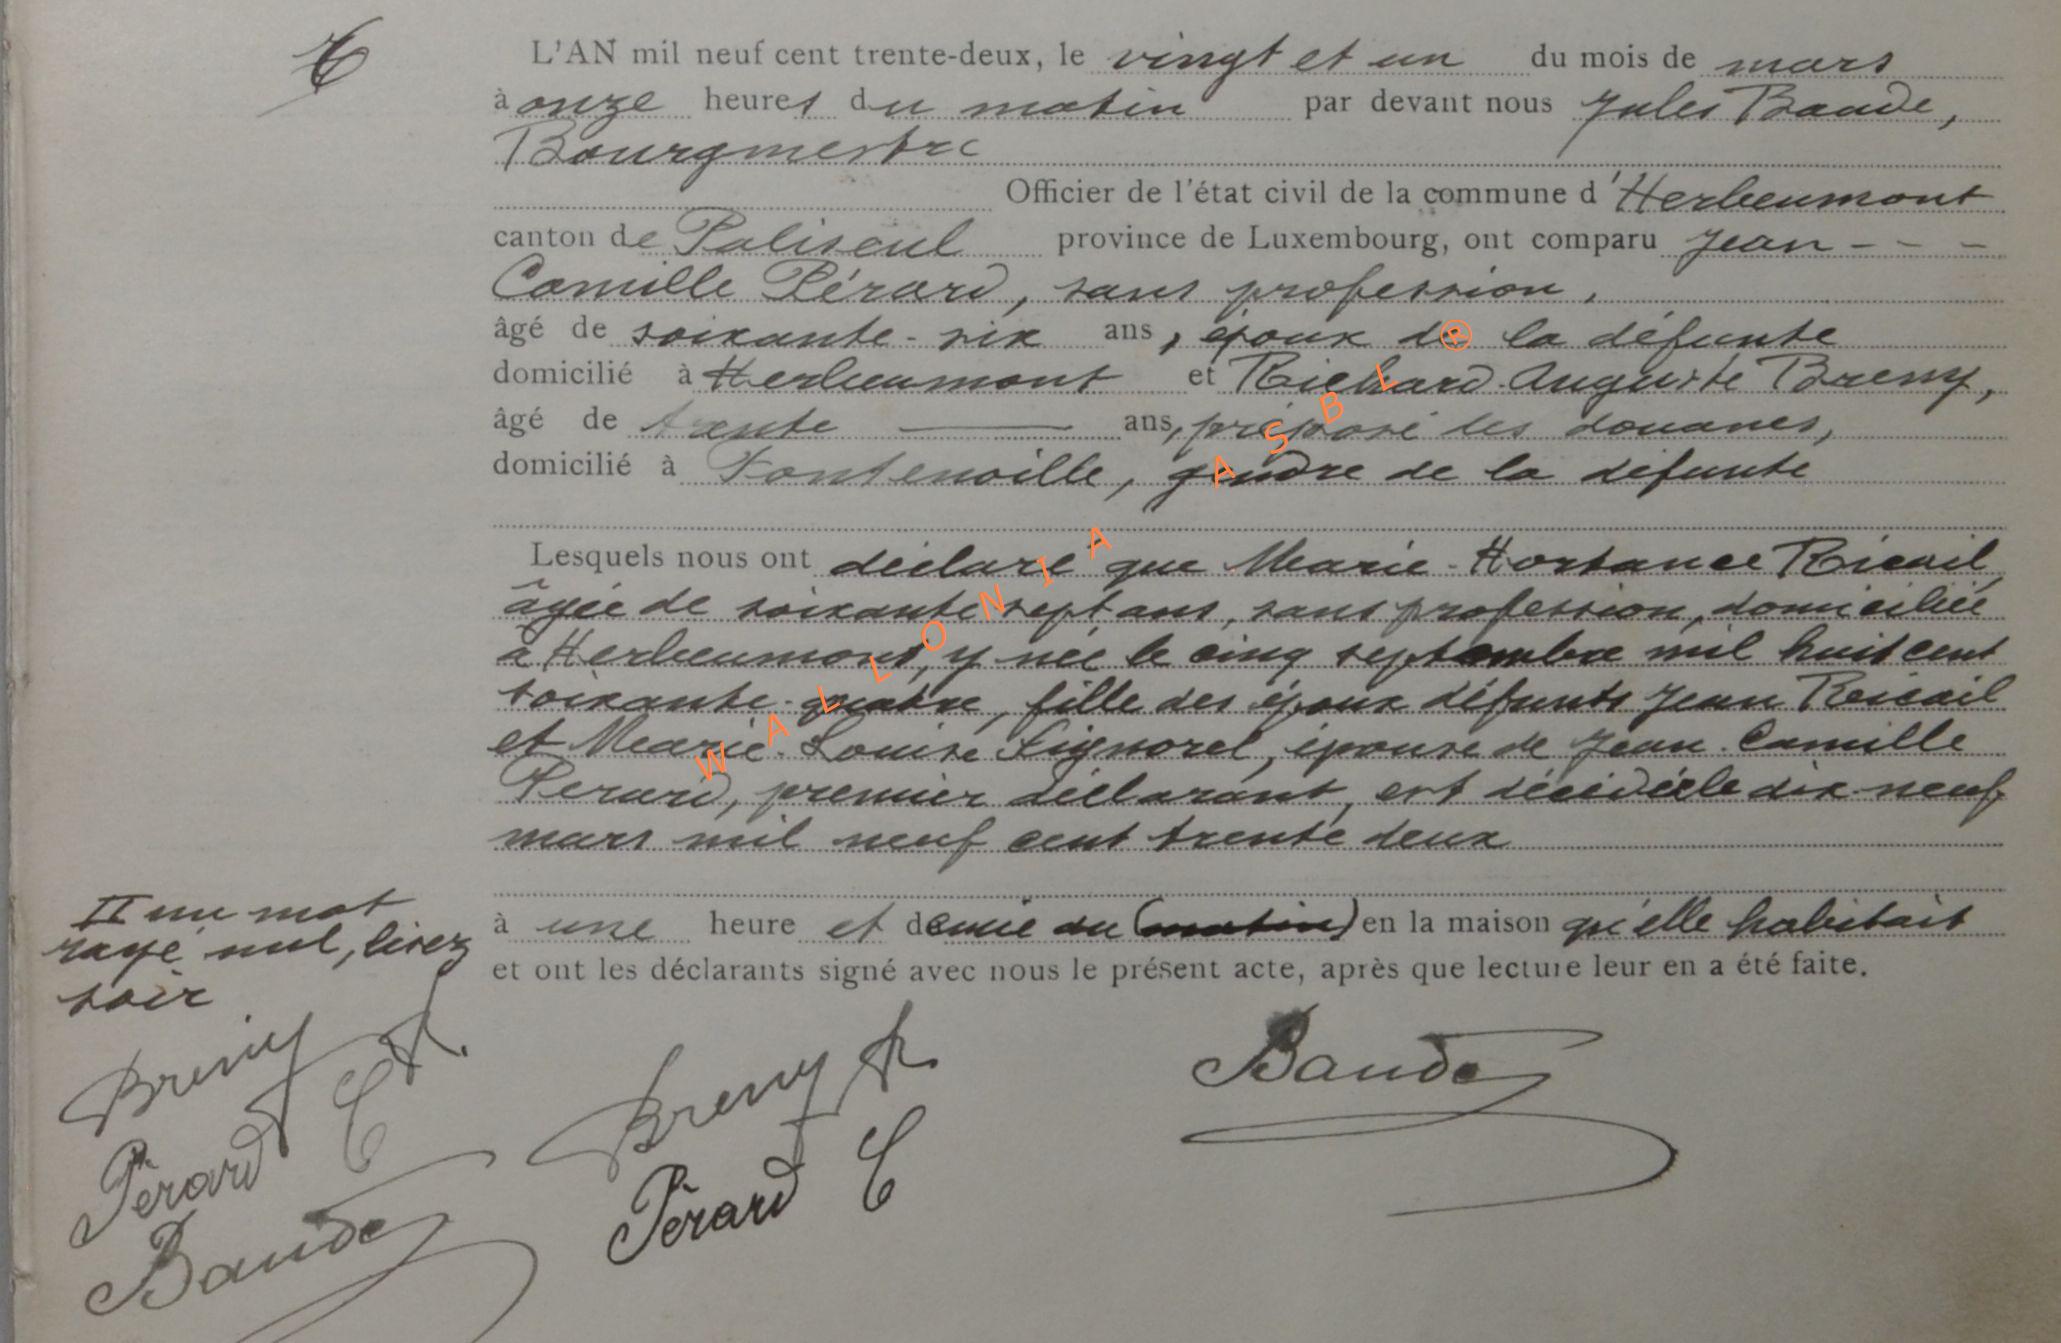 6
L'AN mil neuf cent trente-deux, le vingt et un du mois de mars
à onze heures du matin par devant nous Jules Baude,
Bourgmestre
Officier de l'état civil de la commune d'Herbeumont
canton de Paliseul province de Luxembourg, ont comparu Jean - - -
Camille Pérard, sans profession,
âgé de soixante-six ans, époux de la défunte
domicilié à Herbeumont et Richard-Auguste Breny,
âgé de trente ans, préposé des douanes,
domicilié à Fontenoille, gendre de la défunte
Lesquels nous ont déclaré que Marie-Hortance Ricail
âgée de soixante sept ans, sans profession, domiciliée
à Herbeumont, y née le cinq septembre mil huit cent
soixante-quatre, fille des époux défunts Jean Ricail
et Marie-Louise Lignorel, épouse de Jean-Camille
Perard, premier déclarant, est décédée le dix-neuf
mars mil neuf cent trente deux
à une heure et demie du (matin) en la maison qu'elle habitait
et ont les déclarants signé avec nous le présent acte, après que lecture leur en a été faite.
II un mot
rayé nul, lisez
soir
Breny R.
Pérard C
Baude
Breny R
Pérard C
Baude
WALLONIA ASBL ®